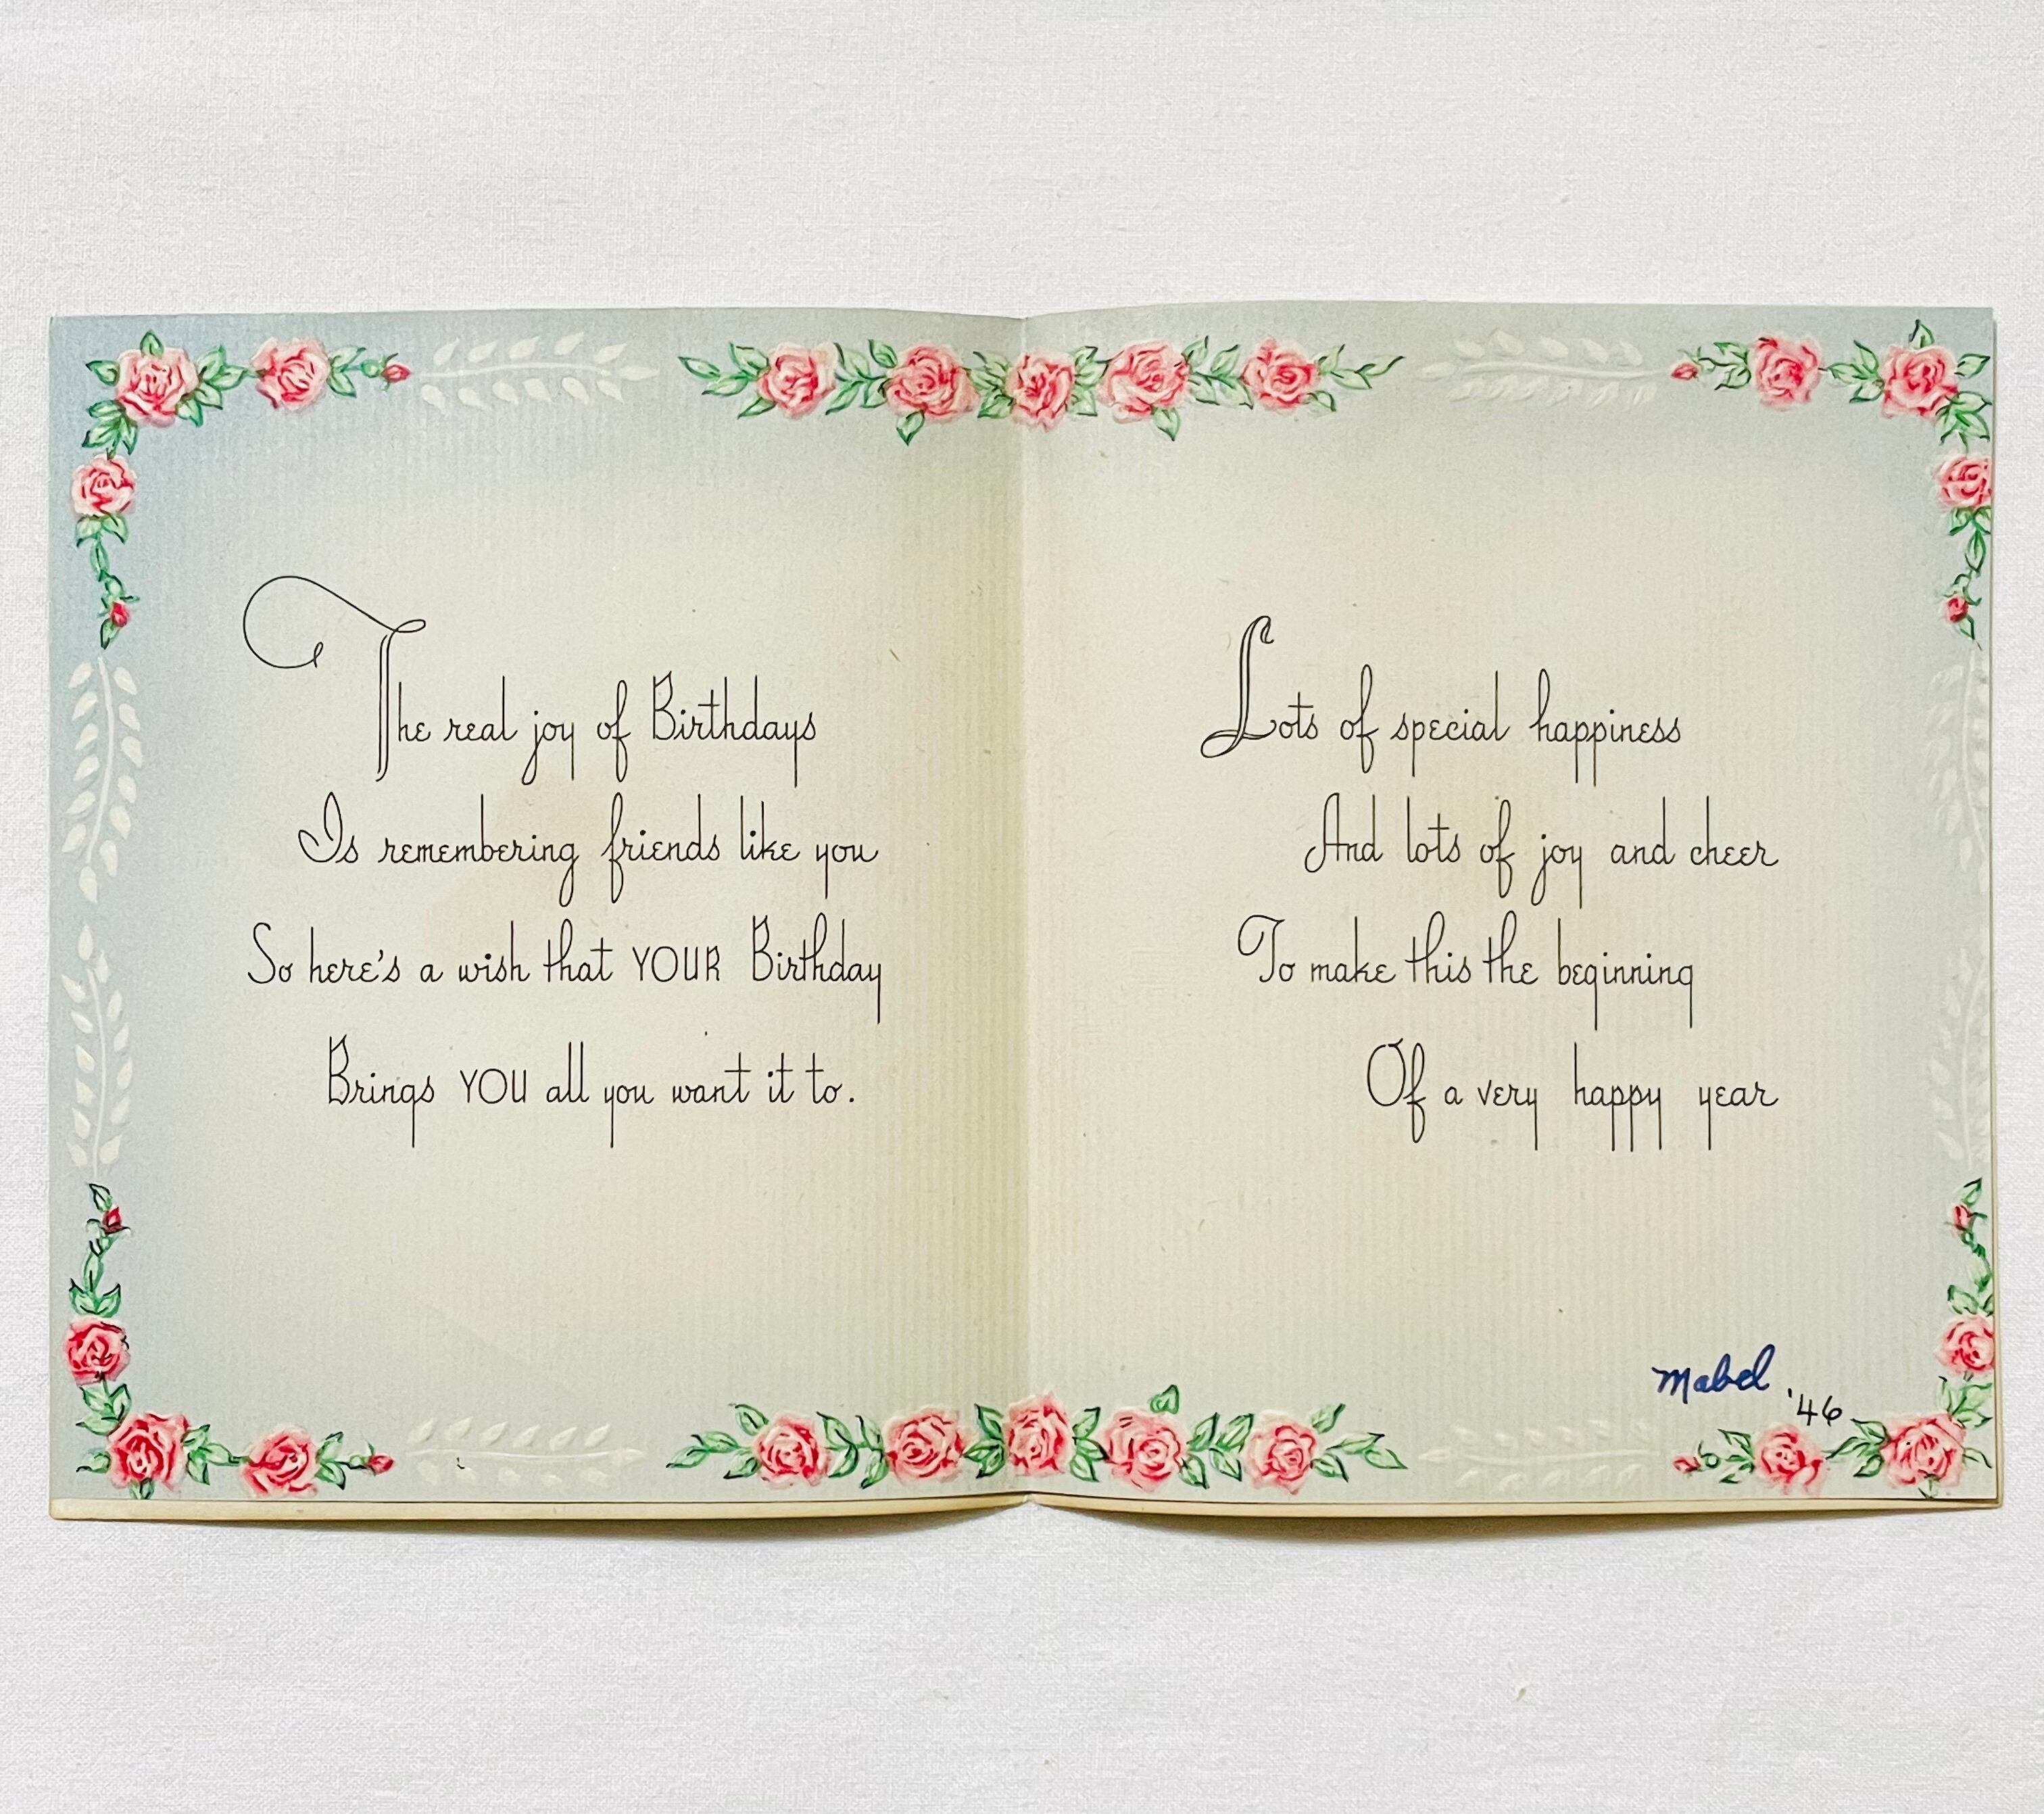 The real joy of Birthdays
Is remembering friends like you
So here's a wish that YOUR Birthday
Brings YOU all you want it to.
Lots of special happiness
And lots of joy and cheer
To make this the beginning
Of a very happy year
Mabel
'46